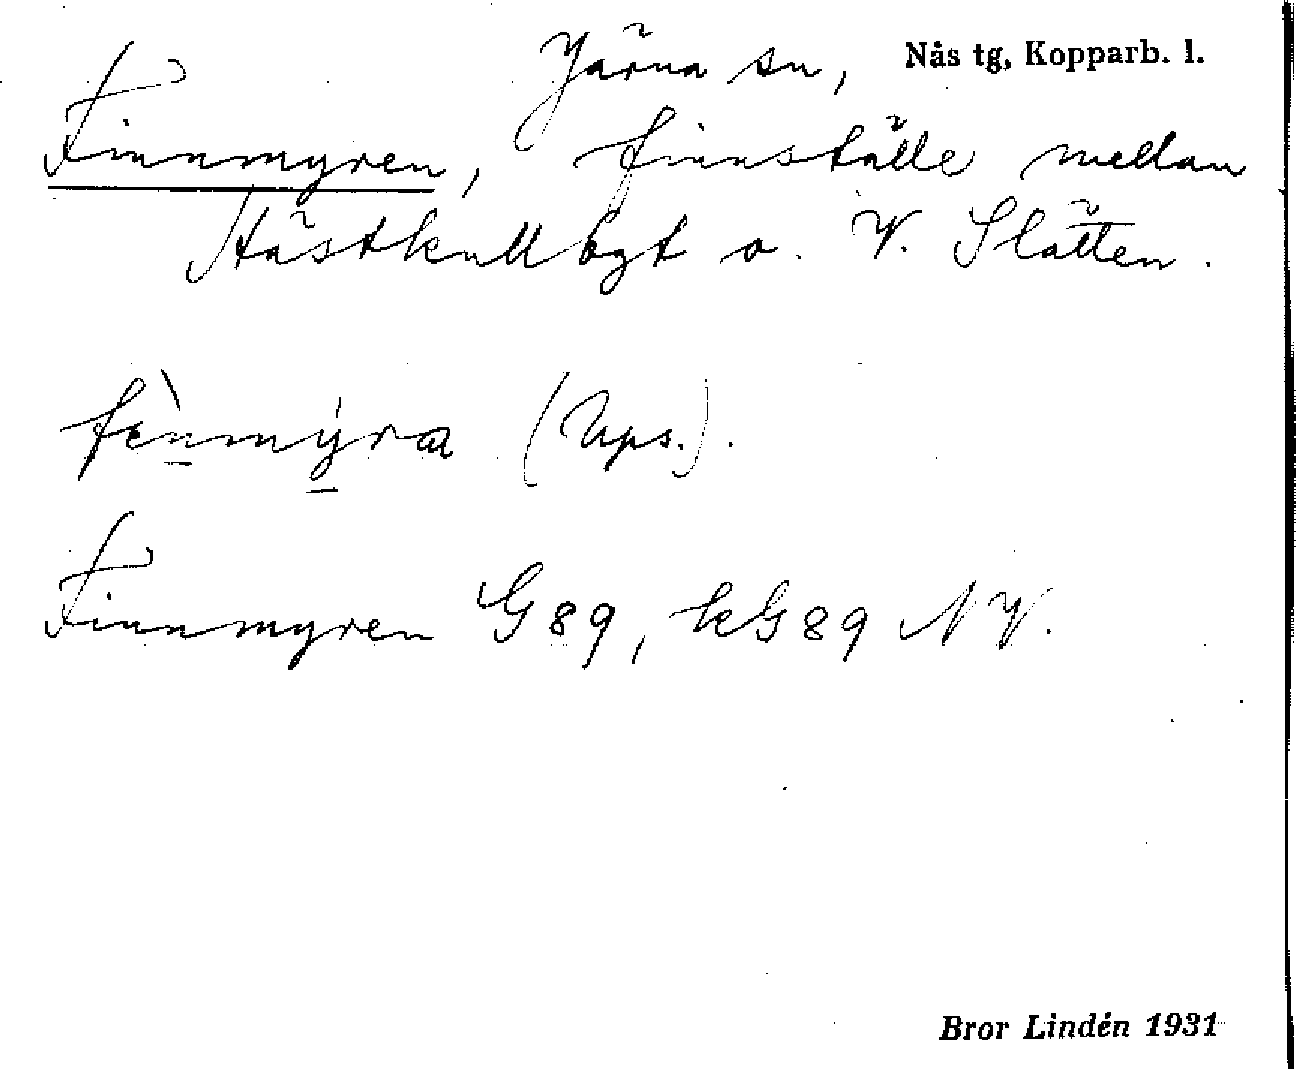 Järna sn, Nås tg, Kopparb. l.
Finnmyren, finnställe mellan
Hästkullbgt o. V. Slätten.
fìnmyra (Ups.).
Finnmyren G89, kG89 NV.
Bror Lindén 1931